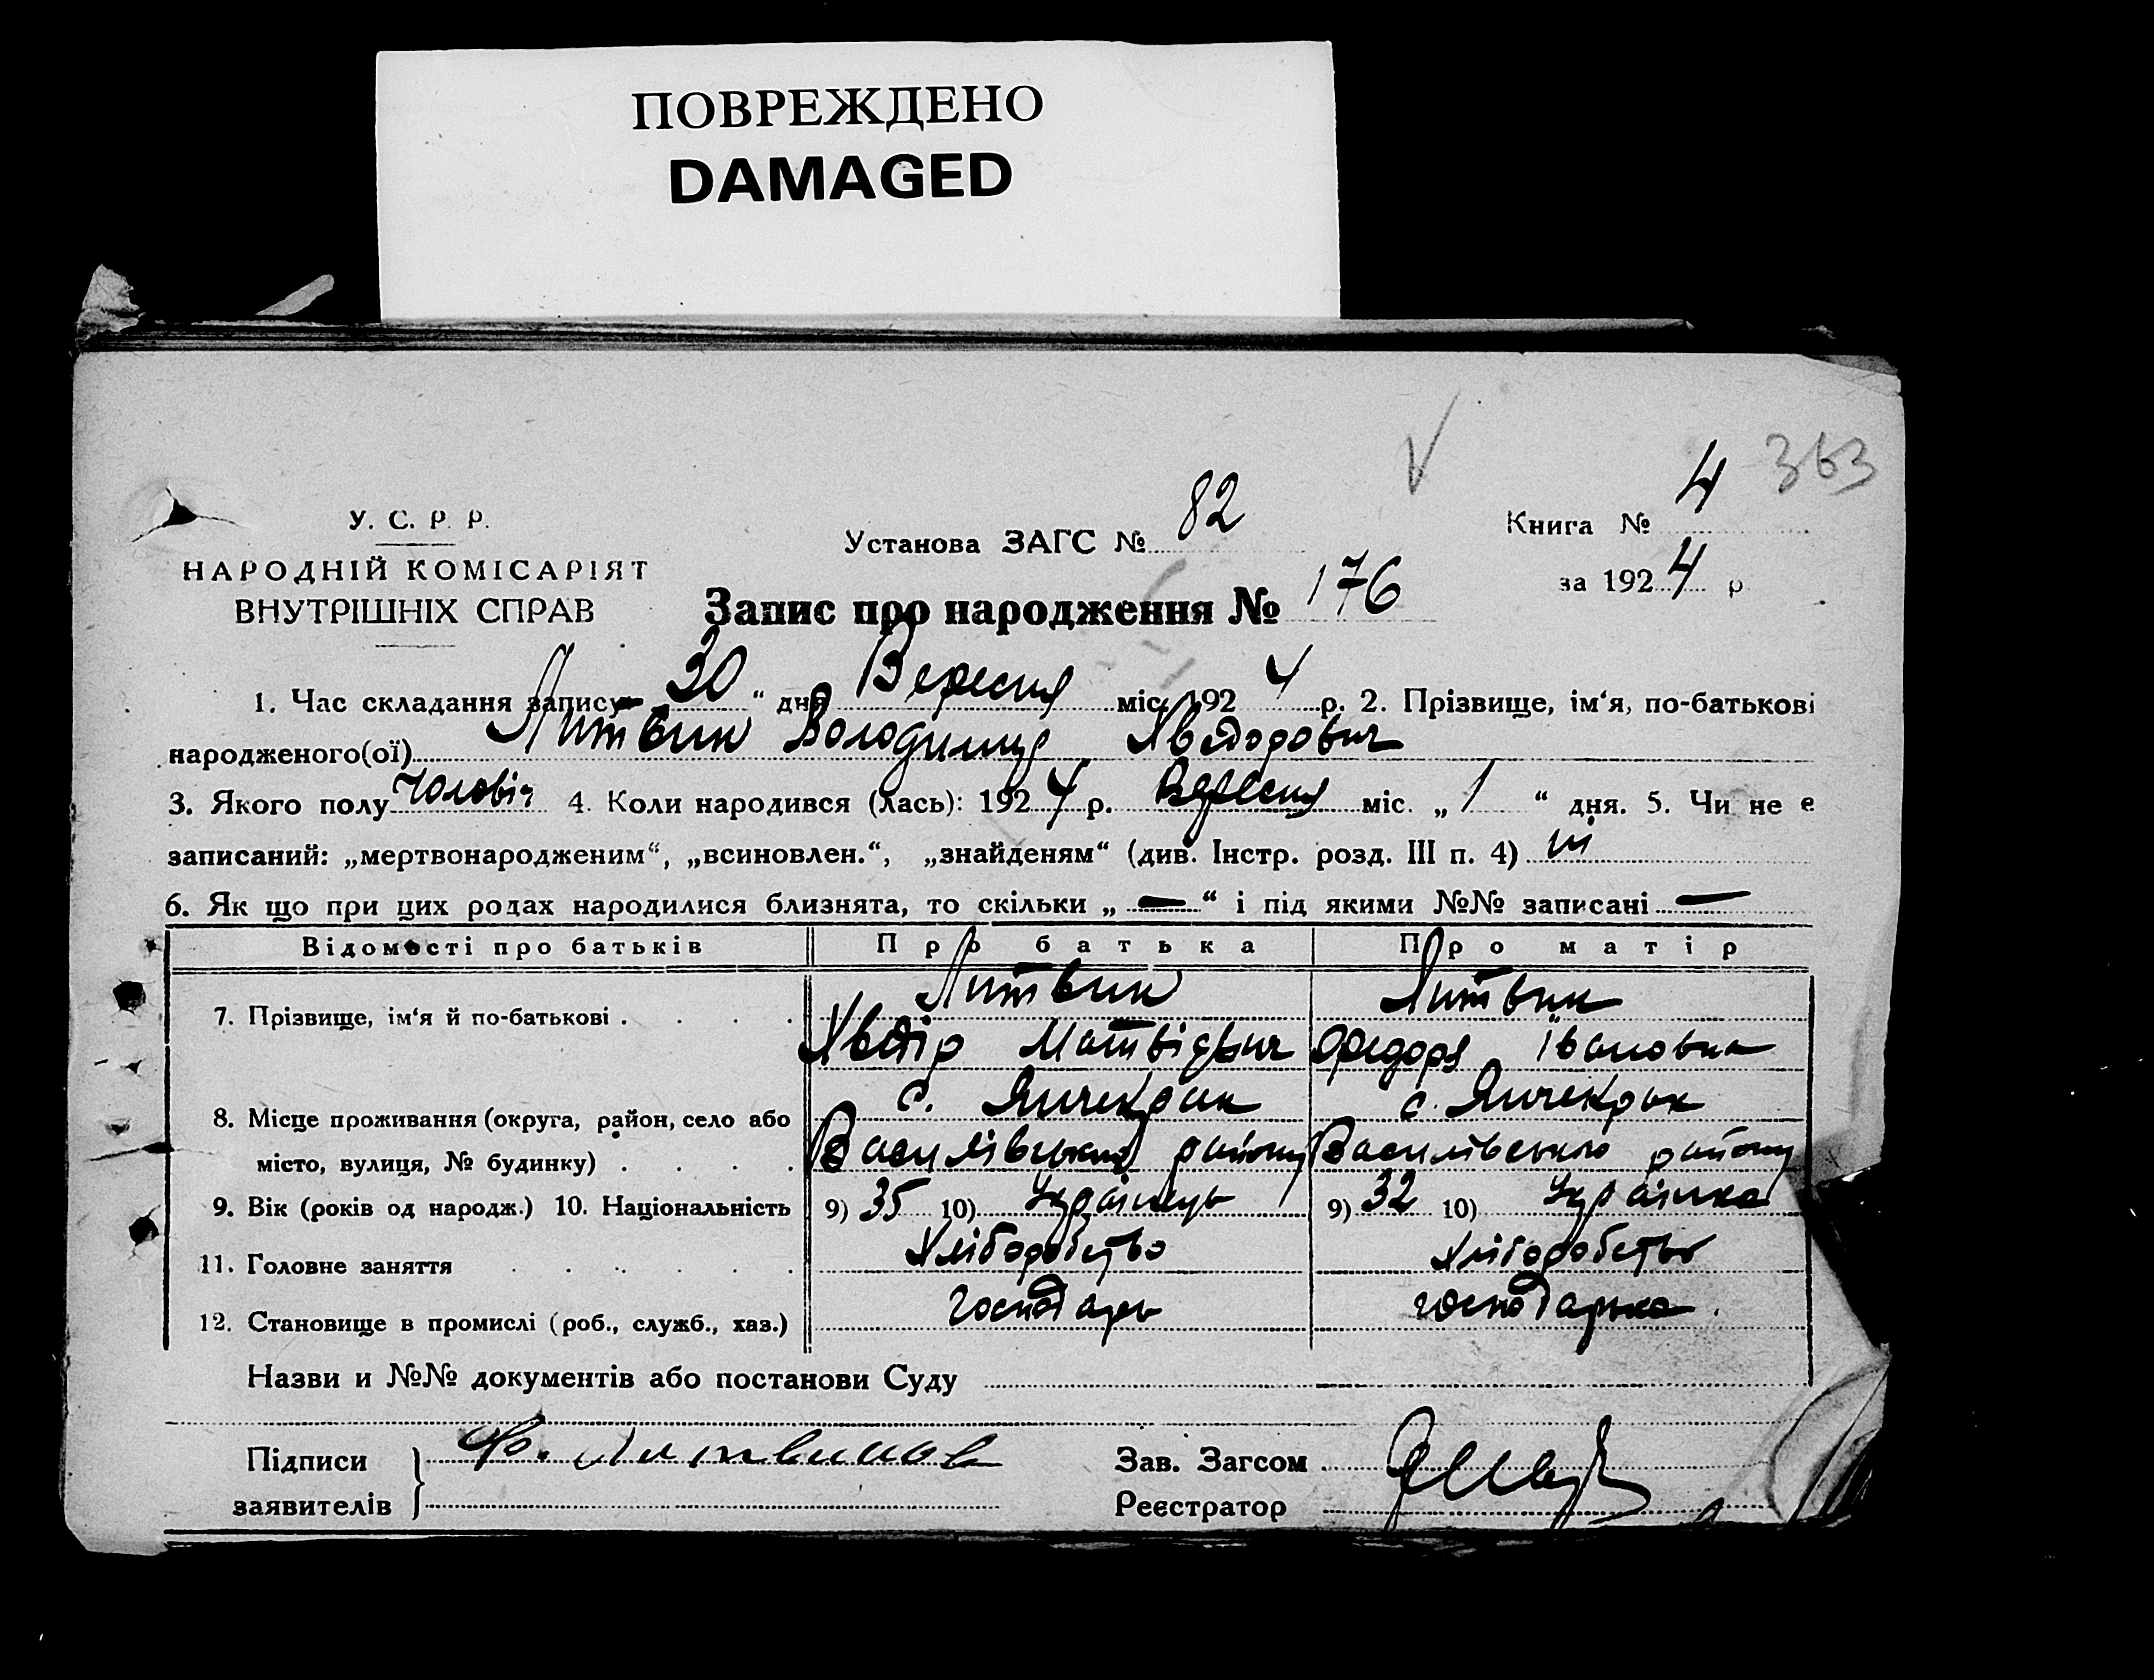 ПОВРЕЖДЕНО
DAMAGED
363
У. С. Р. Р.
НАРОДНІЙ КОМІСАРІЯТ
ВНУТРІШНІХ СПРАВ
Установа ЗАГС № 82
Книга № 4
за 1924 р
Запис про народження № 176
1. Час складання запису 30 “ дня Вересня міс. 1924 р. 2. Прізвище, ім‘я, по-батькові
народженого(ої) Литвин Володимир Хведорович
3. Якого полу чоловіч 4. Коли народився (лась): 1924 р. Вересня міс. „ 1 “ дня. 5. Чи не є
записаний: „мертвонародженим“, „всиновлен.“, „знайденям“ (див. Інстр. розд. III п. 4) ні
6. Як що при цих родах народилися близнята, то скільки „ — “ і під якими №№ записані —
Відомості про батьків Про батька Про матір
7. Прізвище, ім‘я й по-батькові . . . . Литвин Литвин
Хведір Матвієвич Федора Івановна
8. Місце проживання (округа, район, село або с. Янчекрак с. Янчекрак
місто, вулиця, № будинку) . . . . Василівського району Василівського району
9. Вік (років од народж.) 10. Національність 9) 35 10) Українець 9) 32 10) Українка
11. Головне заняття . . . . . . Хліборобство Хліборобство
12. Становище в промислі (роб., служб., хаз.) Господарь господарька.
Назви и №№ документів або постанови Суду
Підписи Ф. Литвинов Зав. Загсом
заявителів Реєстратор